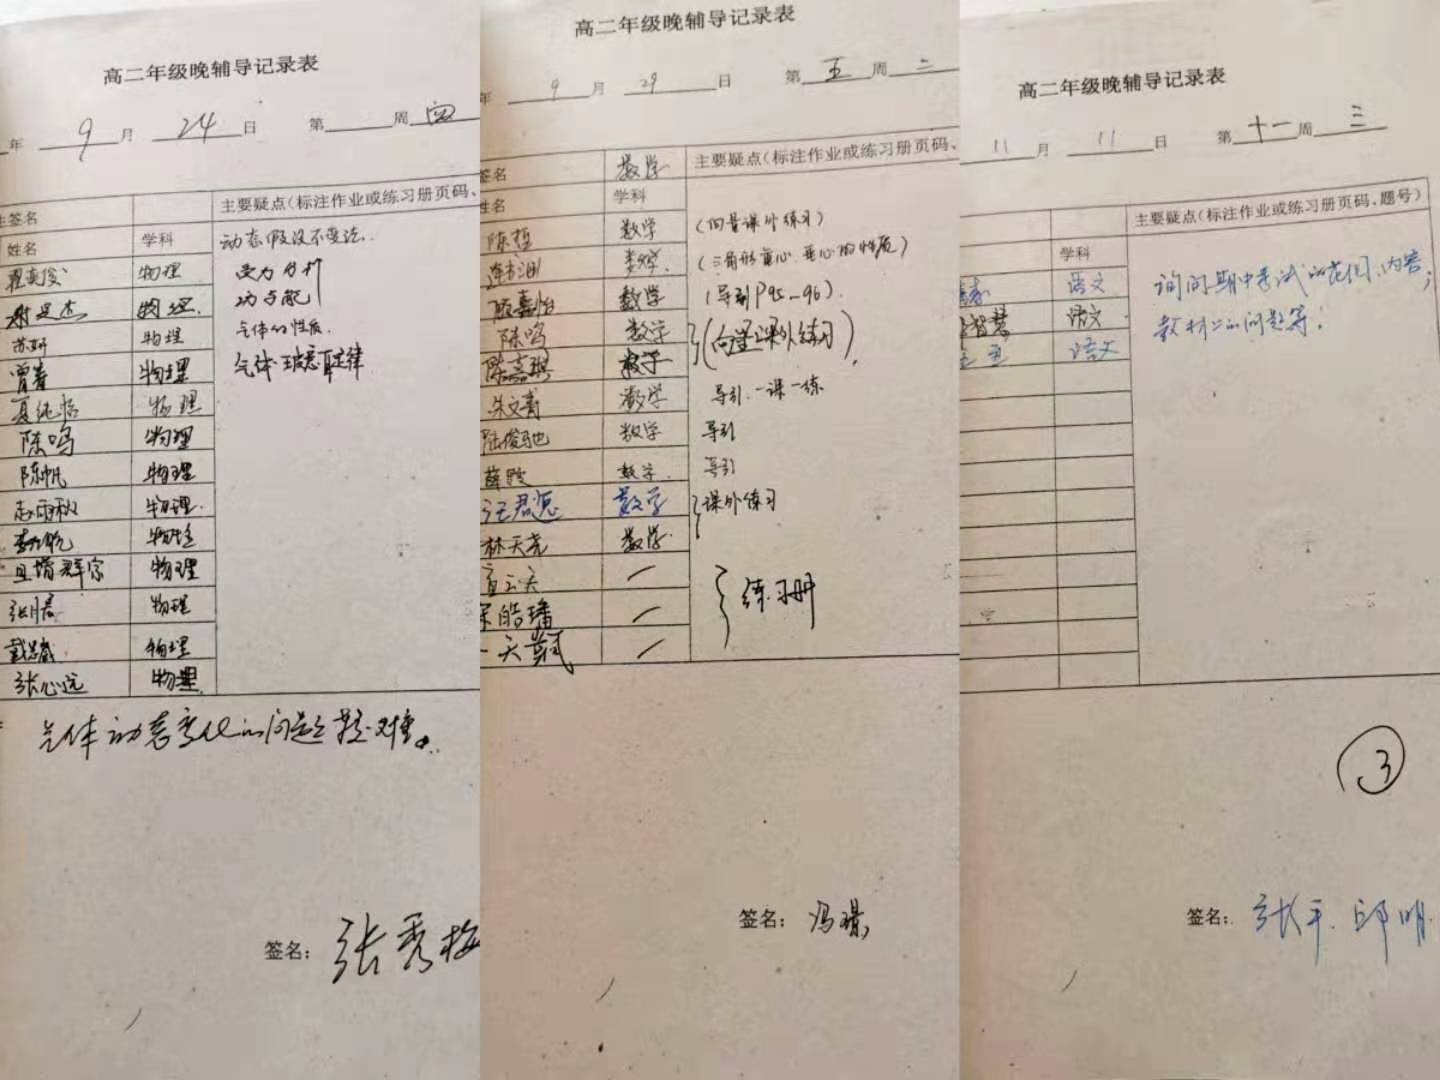 高二年级晚辅导记录表
年 9 月 24 日 第 周 四
签名 主要疑点(标注作业或练习册页码、
姓名 学科 动态假设不变法.
物理 受力分析
物理 功与能
苏妍 物理 气体的性质.
曾春 物理 气体 玻意耳定律
物理
陈鸣 物理
陈帆 物理
物理
物理
物理
物理
物理
张心远 物理
气体动态变化的问题疑难。
签名: 张秀梅
高二年级晚辅导记录表
年 9 月 29 日 第 五 周 二
签名 数学 主要疑点(标注作业或练习册页码、
姓名 学科
陈哲 数学 (向量课外练习)
数学 (三角形重心.垂心的性质)
顾嘉怡 数学 (导引P95-96).
陈鸣 数学 (向量课外练习)
陈嘉琪 数学
朱文青 数学 导引.一课一练
陆俊驰 数学 导引
薛 数学 导引
汪君 数学 课外练习
林天尧 数学
练习册
皓璠
签名: 冯璟
高二年级晚辅导记录表
11 月 11 日 第 十一 周 三
主要疑点(标注作业或练习册页码、题号)
学科
语文 询问期中考试的范围、内容;
智慧 语文 教材上的问题等;
语文
③
签名: 张平. 邱明.